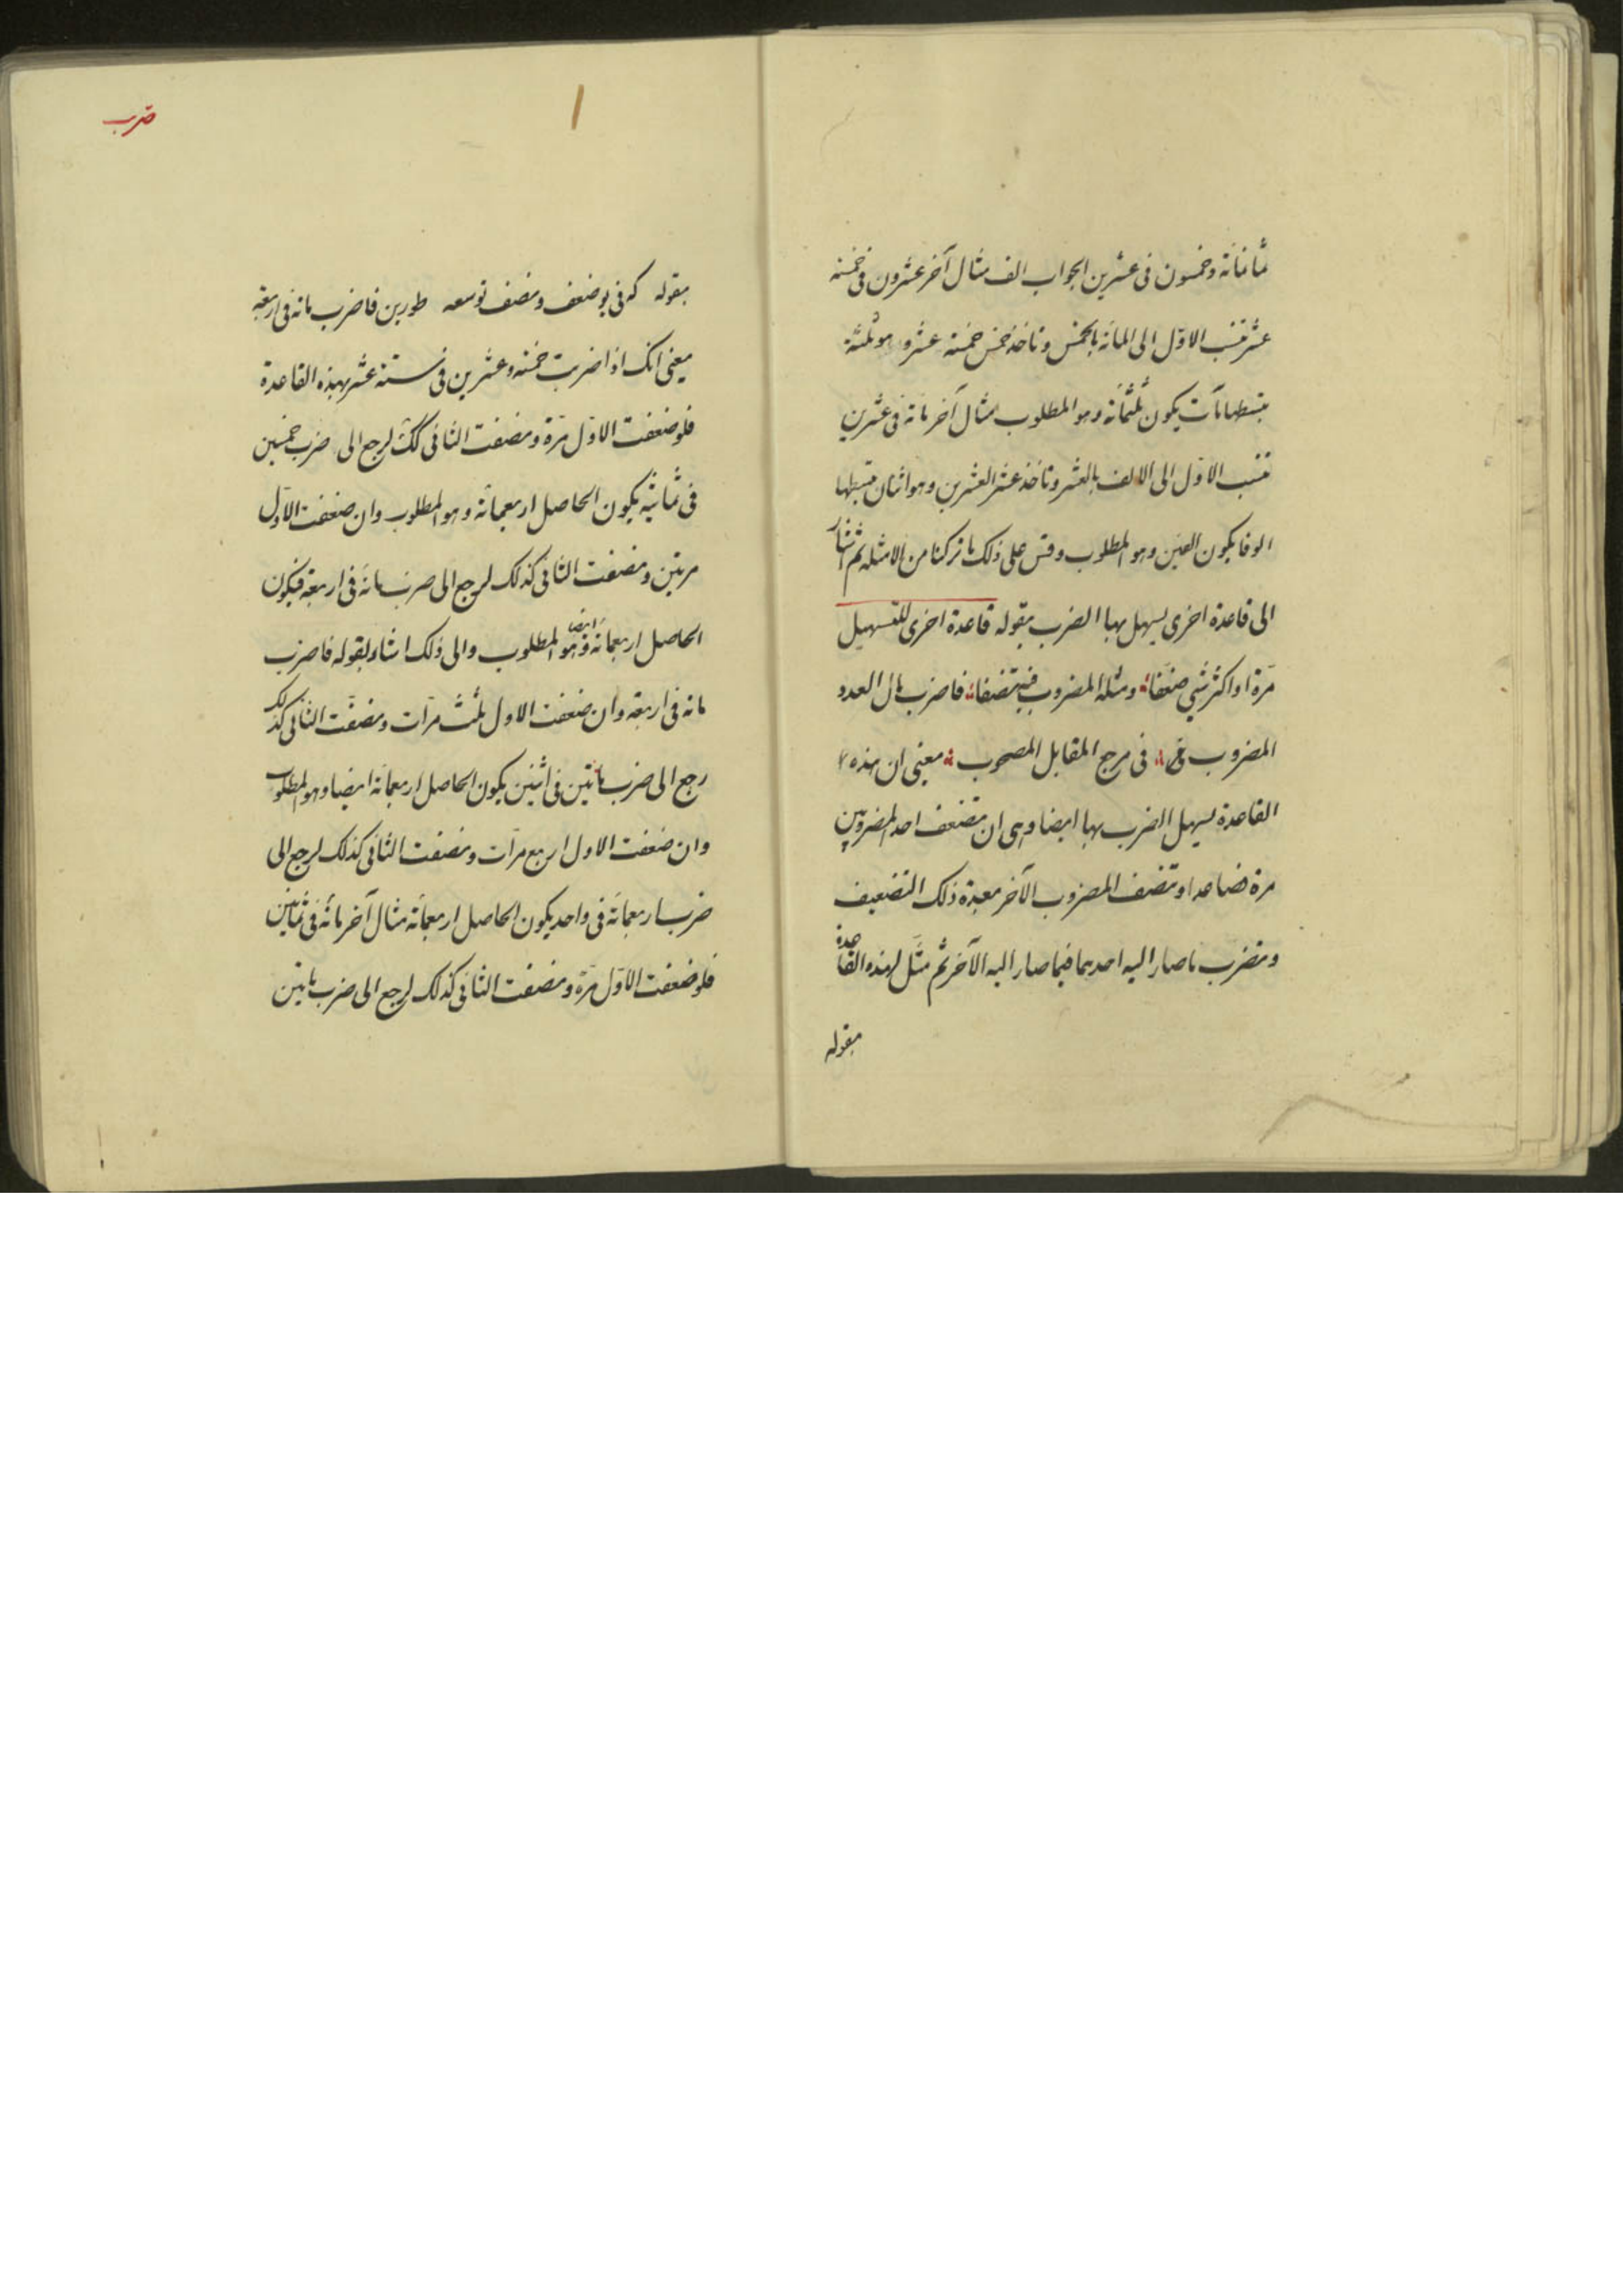 ثمانمائة وخمسون فى عشرين الجواب الف مثال آخر عشرون فى خمسة
عشر تنسب الاوّل الى المائة بالخمس وتاخذ خمس خمسة عشر وهو ثلثة
تبسطها مآت يكون ثلثمائة وهو المطلوب مثال آخر مائة فى عشرين
تنسب الاوّل الى الالف بالعشر وتاخذ عشر العشرين وهو اثنان تبسطها
الوفا يكون الفين وهو المطلوب وقس على ذلك ما تركنا من الامثلة ثم اشار
الى قاعدة اخرى يسهل بها الضرب بقوله قاعدة اخرى للتسهيل
مرّة او اكثر شى ضعّفا ومثله المضروب فيه تنصفا فاضرب مال العدد
المضروب فى مرجع المقابل المصحوب معنى ان هذه
القاعدة يسهل الضرب بها ايضا وهى ان تضعف احد المضروبين
مرة فصاعدا وتنصف المضروب الآخر بعدة ذلك التضعيف
وتضرب ما صار اليه احدهما فيما صار اليه الآخر ثم مثّل لهذه القاعدة
بقوله
ضرب
بقوله كه فى يو ضعف ونصف توسعه طورين فاضرب مائة فى اربعة
معنى انك اذا ضربت خمسة وعشرين فى ستة عشر بهذه القاعدة
فلو ضعفت الاوّل مرّة ونصفت الثانى كك لرجع الى ضرب خمسين
فى ثمانية يكون الحاصل اربعمائة وهو المطلوب وان ضعفت الاوّل
مرتين ونصفت الثانى كذلك لرجع الى ضرب مائة فى اربعة فيكون
الحاصل اربعمائة ايضا وهو المطلوب والى ذلك اشار بقوله فاضرب
مائة فى اربعة وان ضعفت الاول ثلث مرّات ونصفت الثانى كذلك
رجع الى ضرب مائتين فى اثنين يكون الحاصل اربعمائة ايضا وهو المطلوب
وان ضعفت الاول اربع مرّات ونصفت الثانى كذلك لرجع الى
ضرب اربعمائة فى واحد يكون الحاصل اربعمائة مثال آخر مائة فى ثمانين
فلو ضعفت الاوّل مرّة ونصفت الثانى كذلك لرجع الى ضرب مائتين